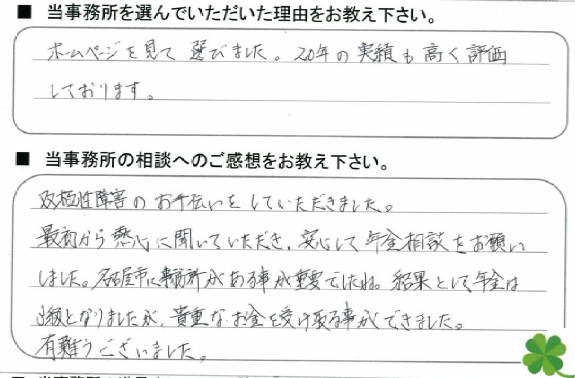 ■ 当事務所を選んでいただいた理由をお教え下さい。
ホームページを見て選びました。20年の実績も高く評価
しております。
■ 当事務所の相談へのご感想をお教え下さい。
双極性障害のお手伝いをしていただきました。
最初から熱心に聞いていただき、安心して年金相談をお願い
しました。名古屋市に事務所がある事が重要でしたね。結果として年金は
3級となりましたが、貴重なお金を受け取る事ができました。
有難うございました。